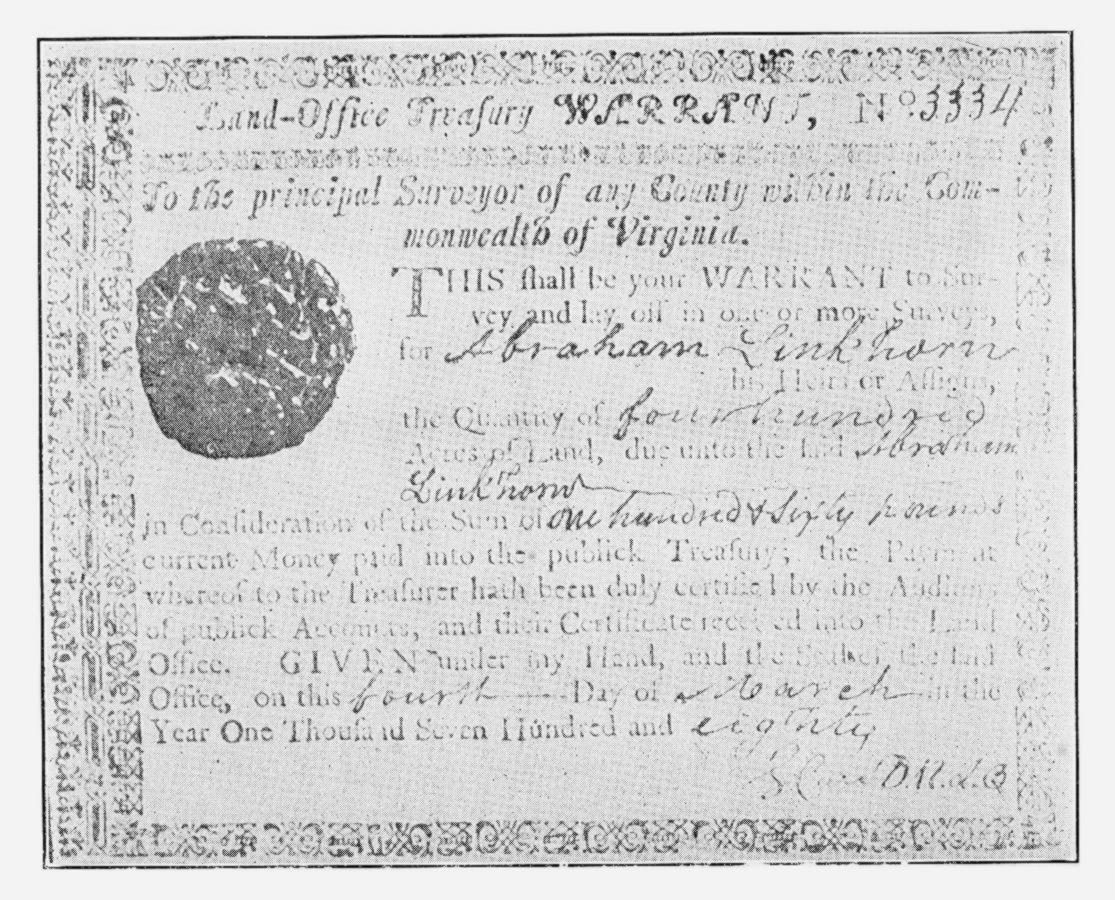 Land-Office Treasury WARRANT, No. 3334
To the principal Surveyor of any County within the Com-
monwealth of Virginia.
THIS ſhall be your WARRANT to Sur-
vey and lay off in one or more Surveys,
for Abraham Linkhorn
his Heirs or Aſſigns,
the Quantity of four hundred
Acres of Land, due unto the ſaid Abraham
Linkhorn
in Conſideration of the Sum of one hundred & Sixty pounds
current Money paid into the publick Treaſury; the Payment
whereof to the Treaſurer hath been duly certified by the Auditors
of publick Accounts, and their Certificate received into the Land
Office. GIVEN under my Hand, and the Seal of the ſaid
Office, on this fourth Day of March in the
Year One Thouſand Seven Hundred and eighty